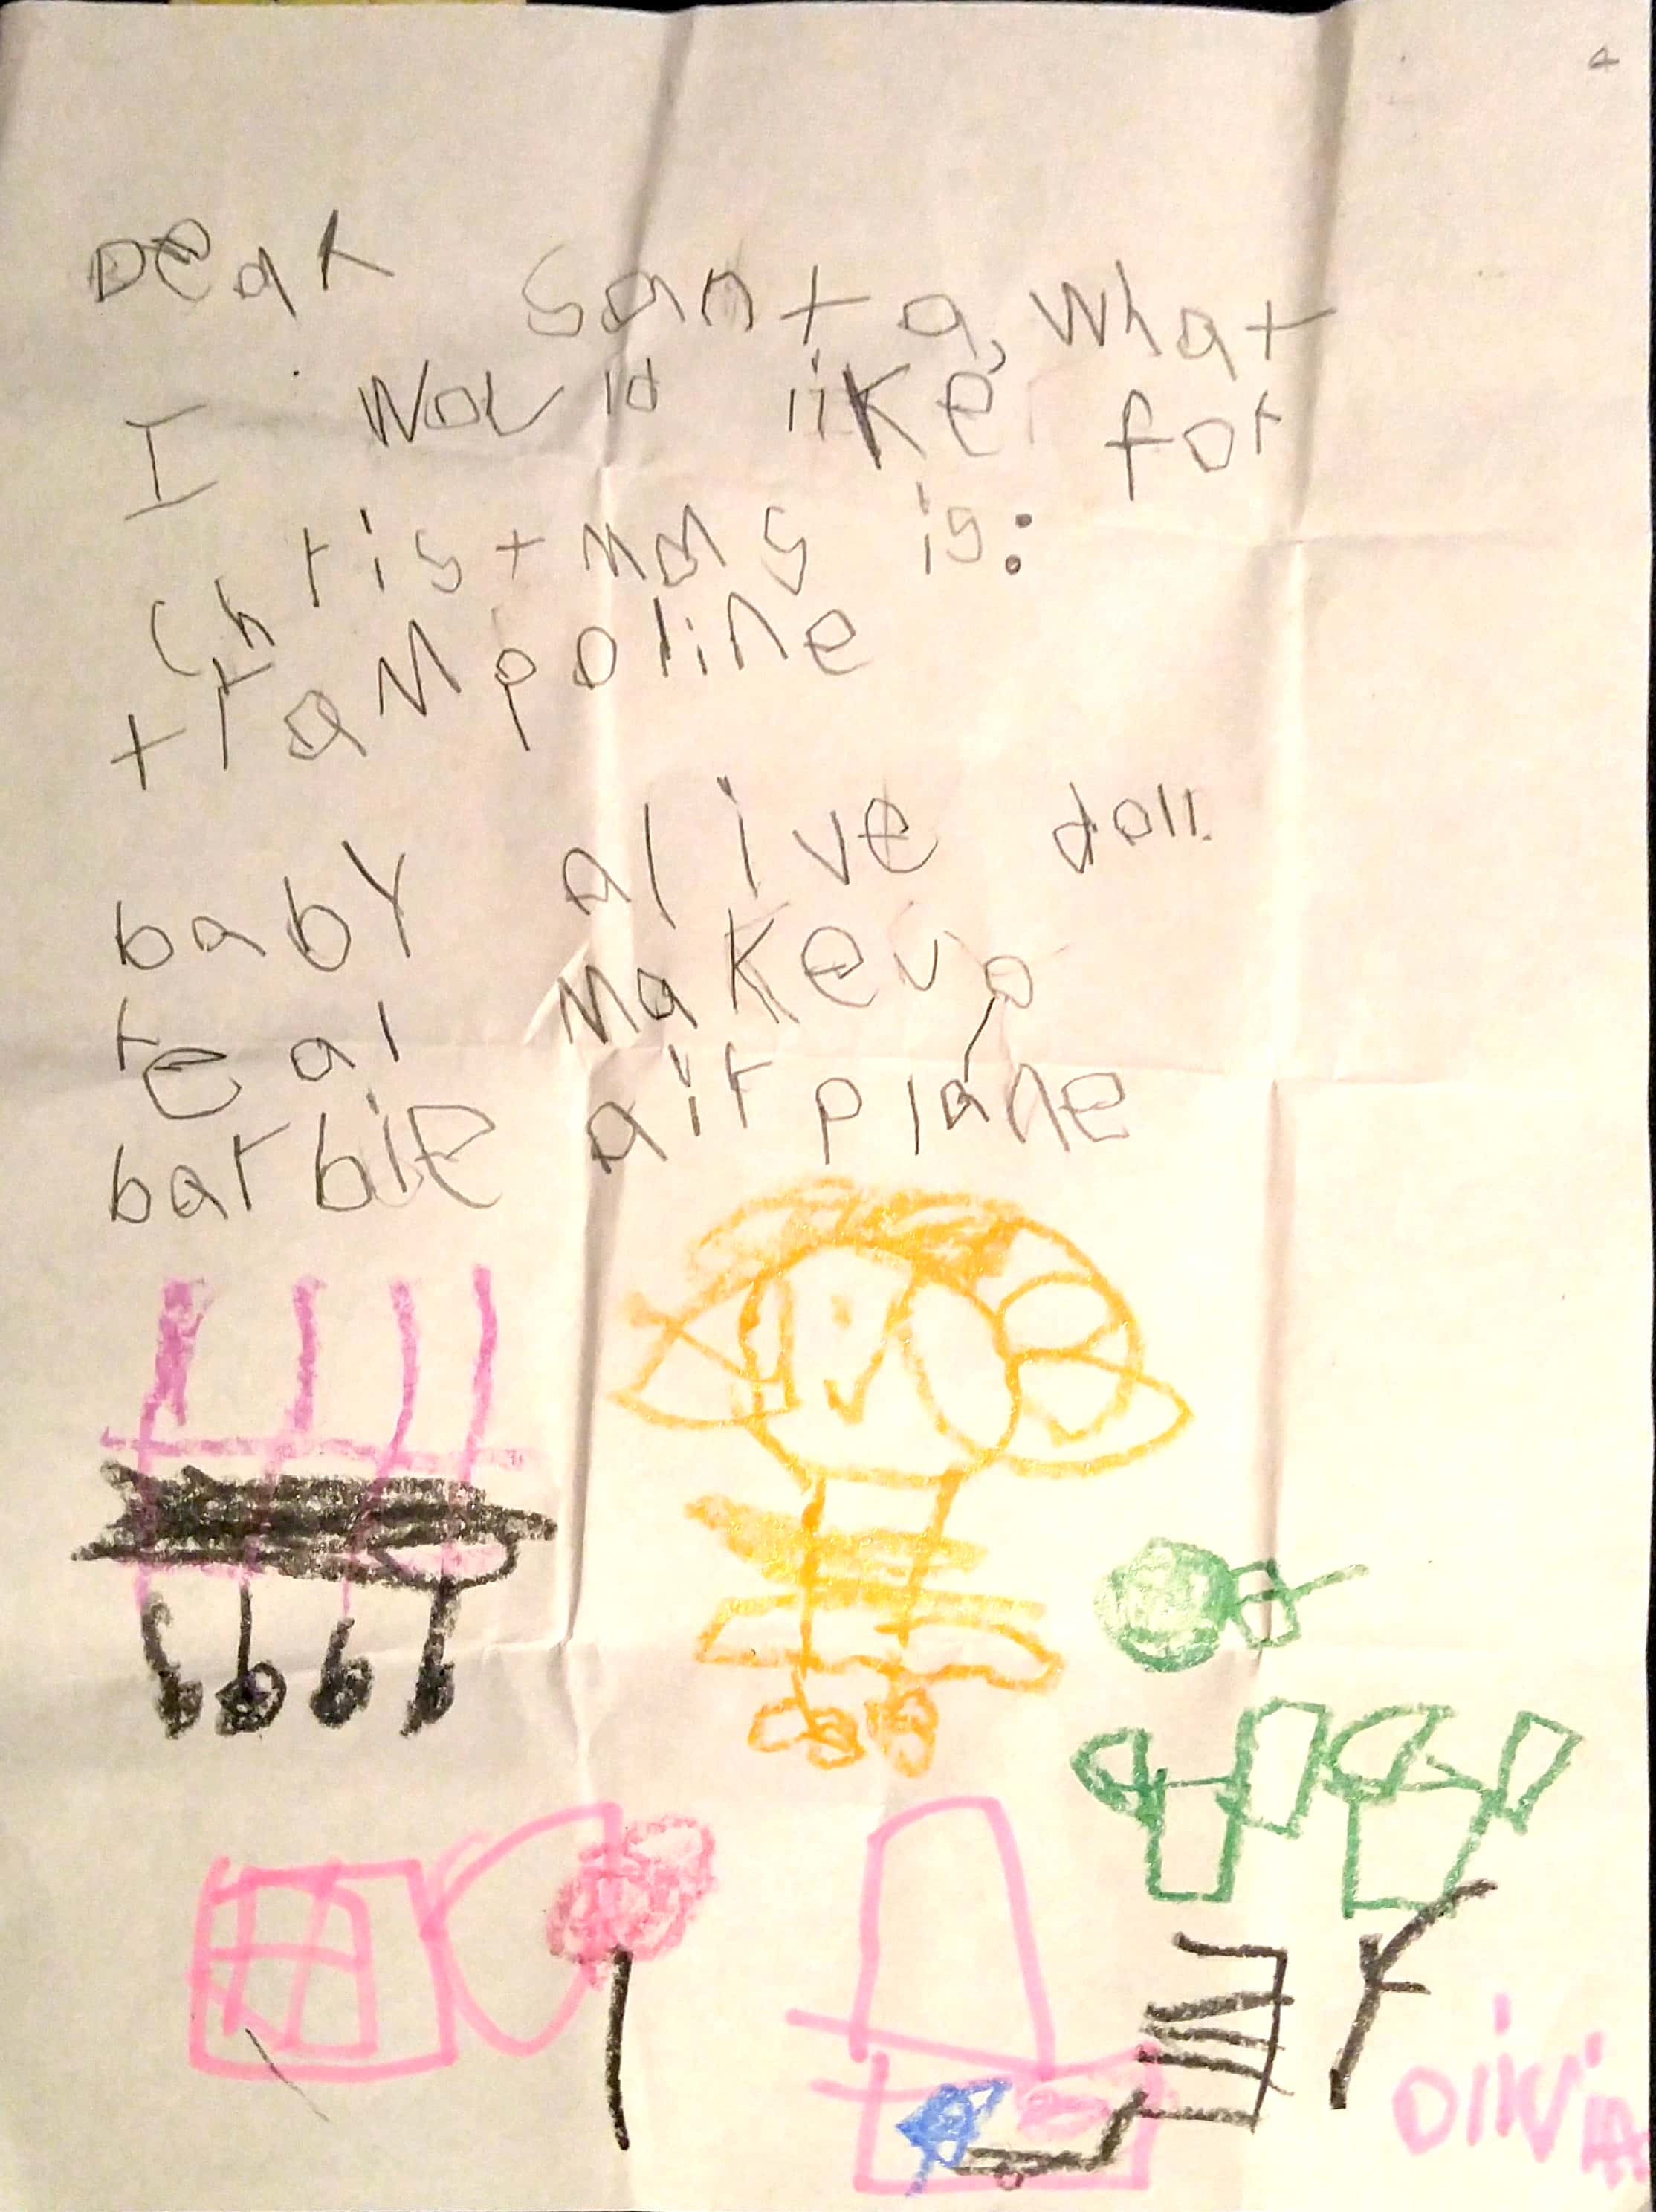 Dear Santa, what
I would like for
Christmas is:
trampoline
baby alive doll
real makeup
barbie airplane
Olivia